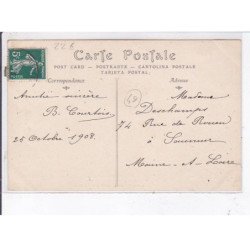 226
Carte Postale
POST CARD - POSTKARTE - CARTOLINA POSTALE
TARJETA POSTAL
Correspondance
Adresse
Amitié sincère
B. Courtois
25 Octobre 1908.
69
Madame
Deschamps
74 Rue de Rouen
à Saumur
Maine-et-Loire